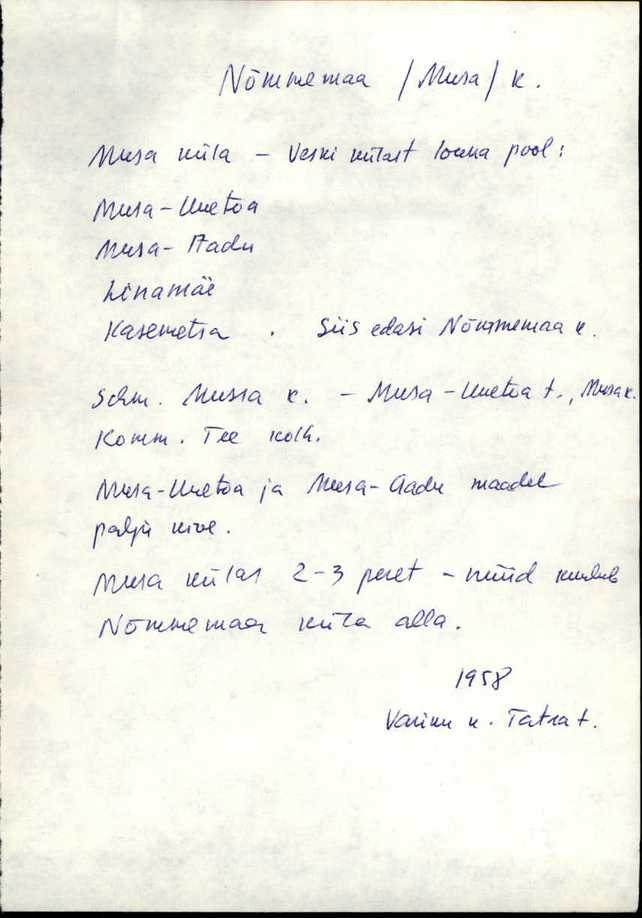 Nõmmemaa /Musa/ k.
Musa küla – Veski külast lõuna pool:
Musa-Uuetoa
Musa-Aadu
Linamäe
Kasemetsa . Siis edasi Nõmmemaa k.
Schm. Mussa k. – Musa-Uuetoa t., Musa k.
Komm. Tee kolh.
Musa-Uuetoa ja Musa-Aadu maadel
palju kive.
Musa külas 2-3 peret – nüüd kuulub
Nõmmemaa küla alla.
1958
k. Tatra t.